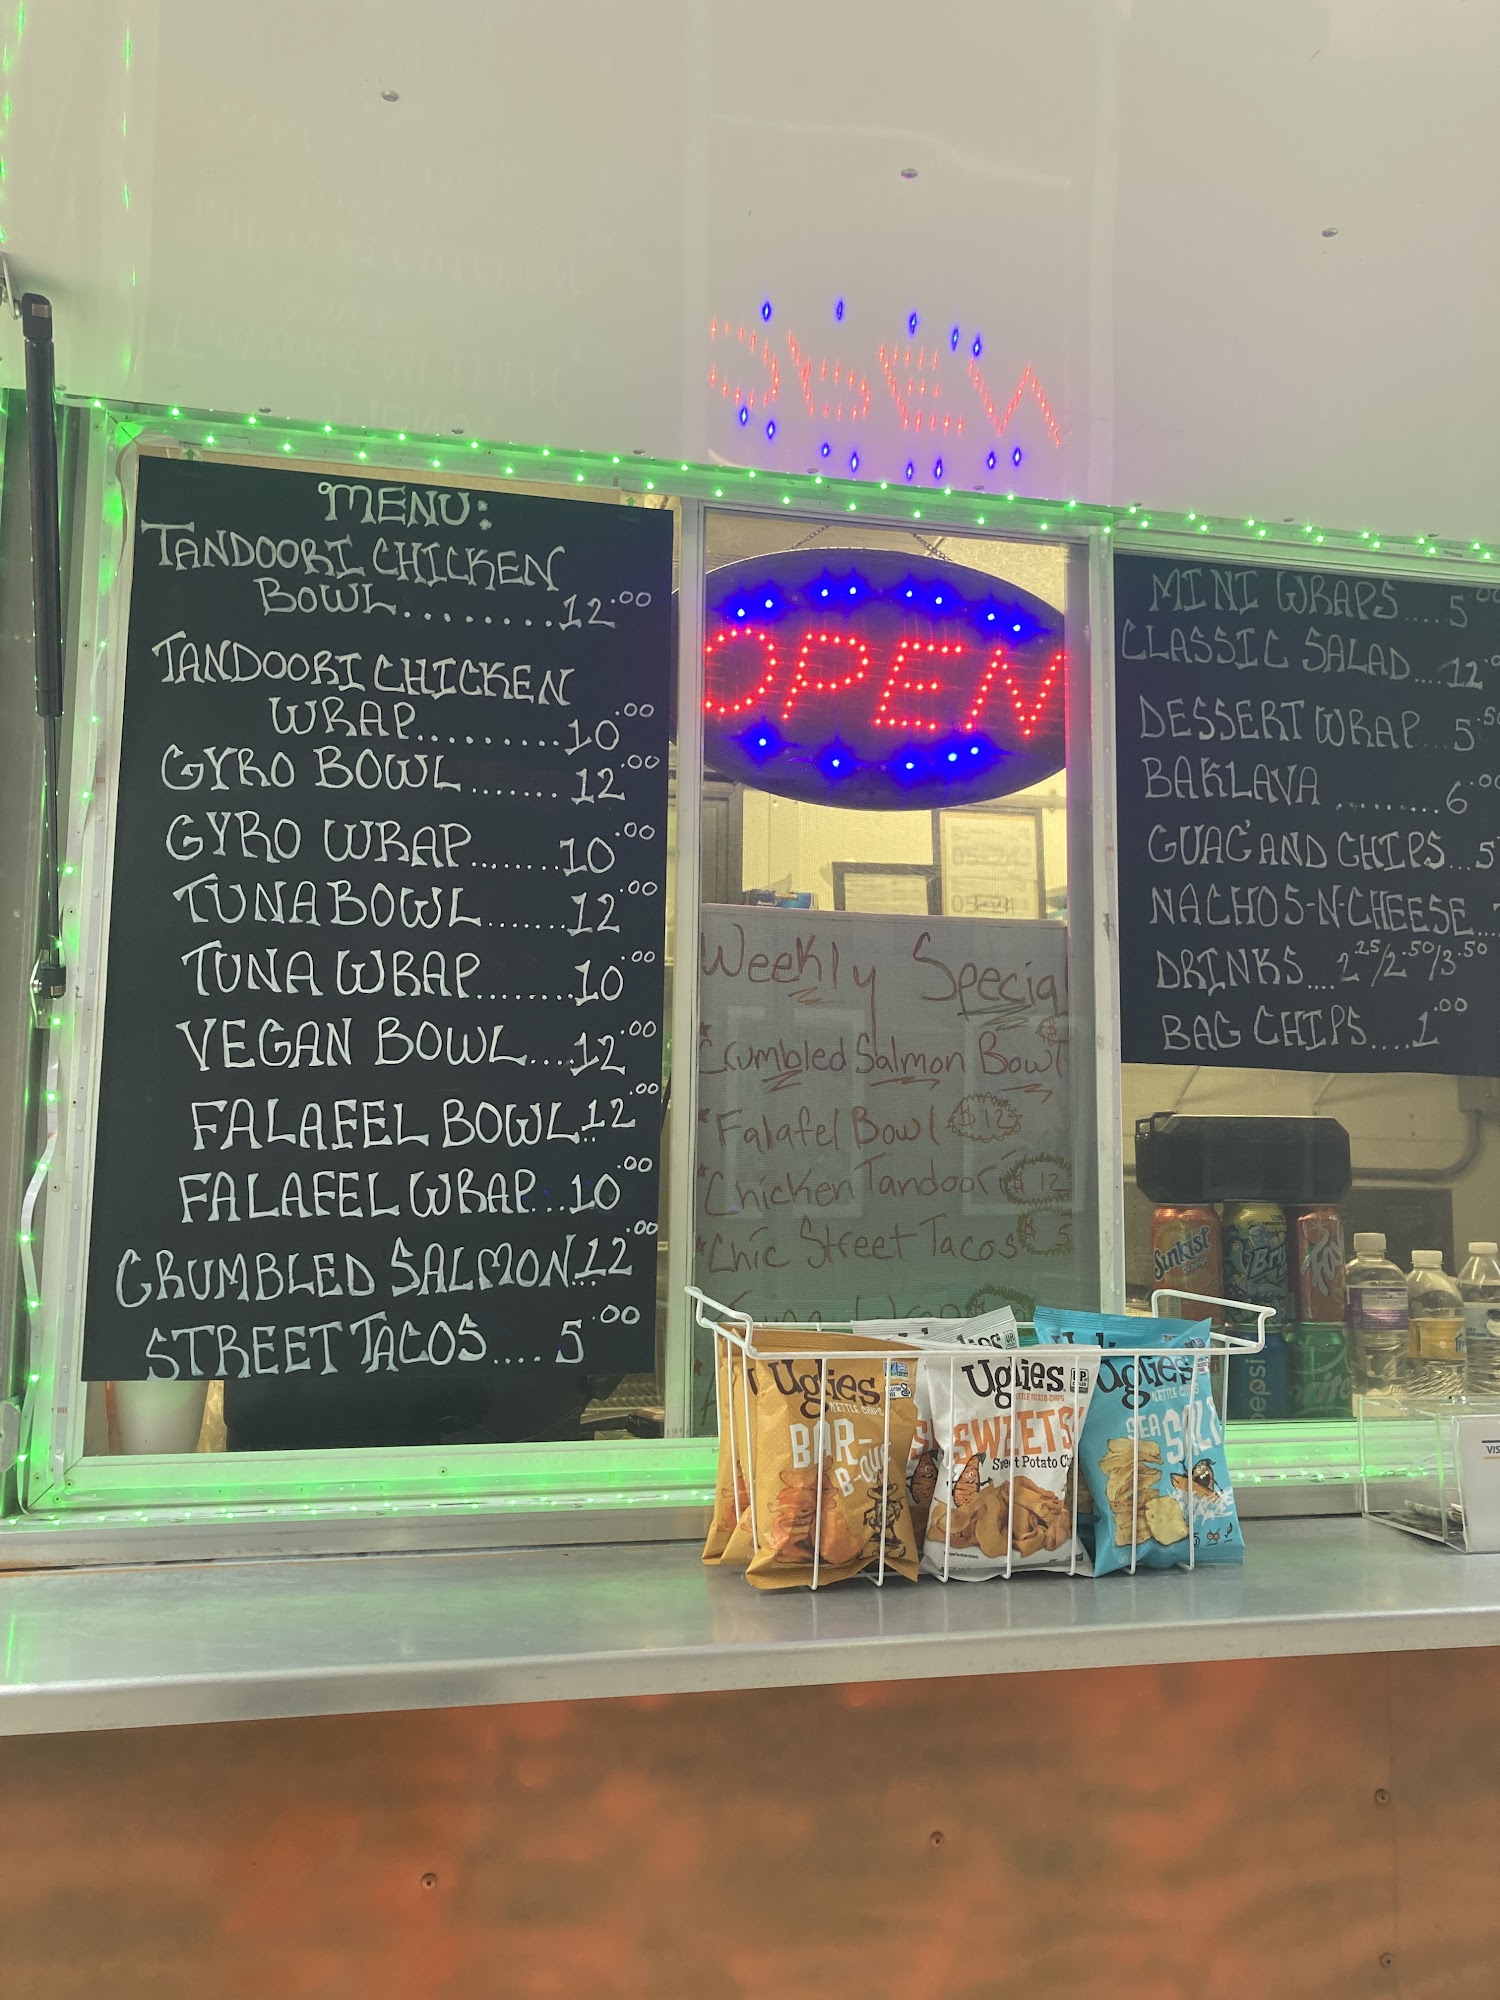 MENU:
TANDOORI CHICKEN
BOWL........12.00
TANDOORI CHICKEN
WRAP.........10.00
GYRO BOWL.......12.00
GYRO WRAP.......10.00
TUNA BOWL......12.00
TUNA WRAP.......10.00
VEGAN BOWL....12.00
FALAFEL BOWL..12.00
FALAFEL WRAP...10.00
CRUMBLED SALMON...12.00
STREET TACOS....5.00
OPEN
05-24
05-24
Weekly Special
Crumbled Salmon Bowl
*Falafel Bowl $12
*Chicken Tandoori $12
*Chic Street Tacos $5
MINI WRAPS....5.00
CLASSIC SALAD....12
DESSERT WRAP...5.50
BAKLAVA.........6.00
GUAC AND CHIPS...5
NACHOS-N-CHEESE....
DRINKS....2.25/2.50/3.50
BAG CHIPS....1.00
Sunkist
pepsi
Uglies
KETTLE CHIPS
BAR-
B-QUE
Uglies
KETTLE POTATO CHIPS
SWEETS
Sweet Potato Ch
Uglies
KETTLE CHIPS
SEA
SALT
VIS